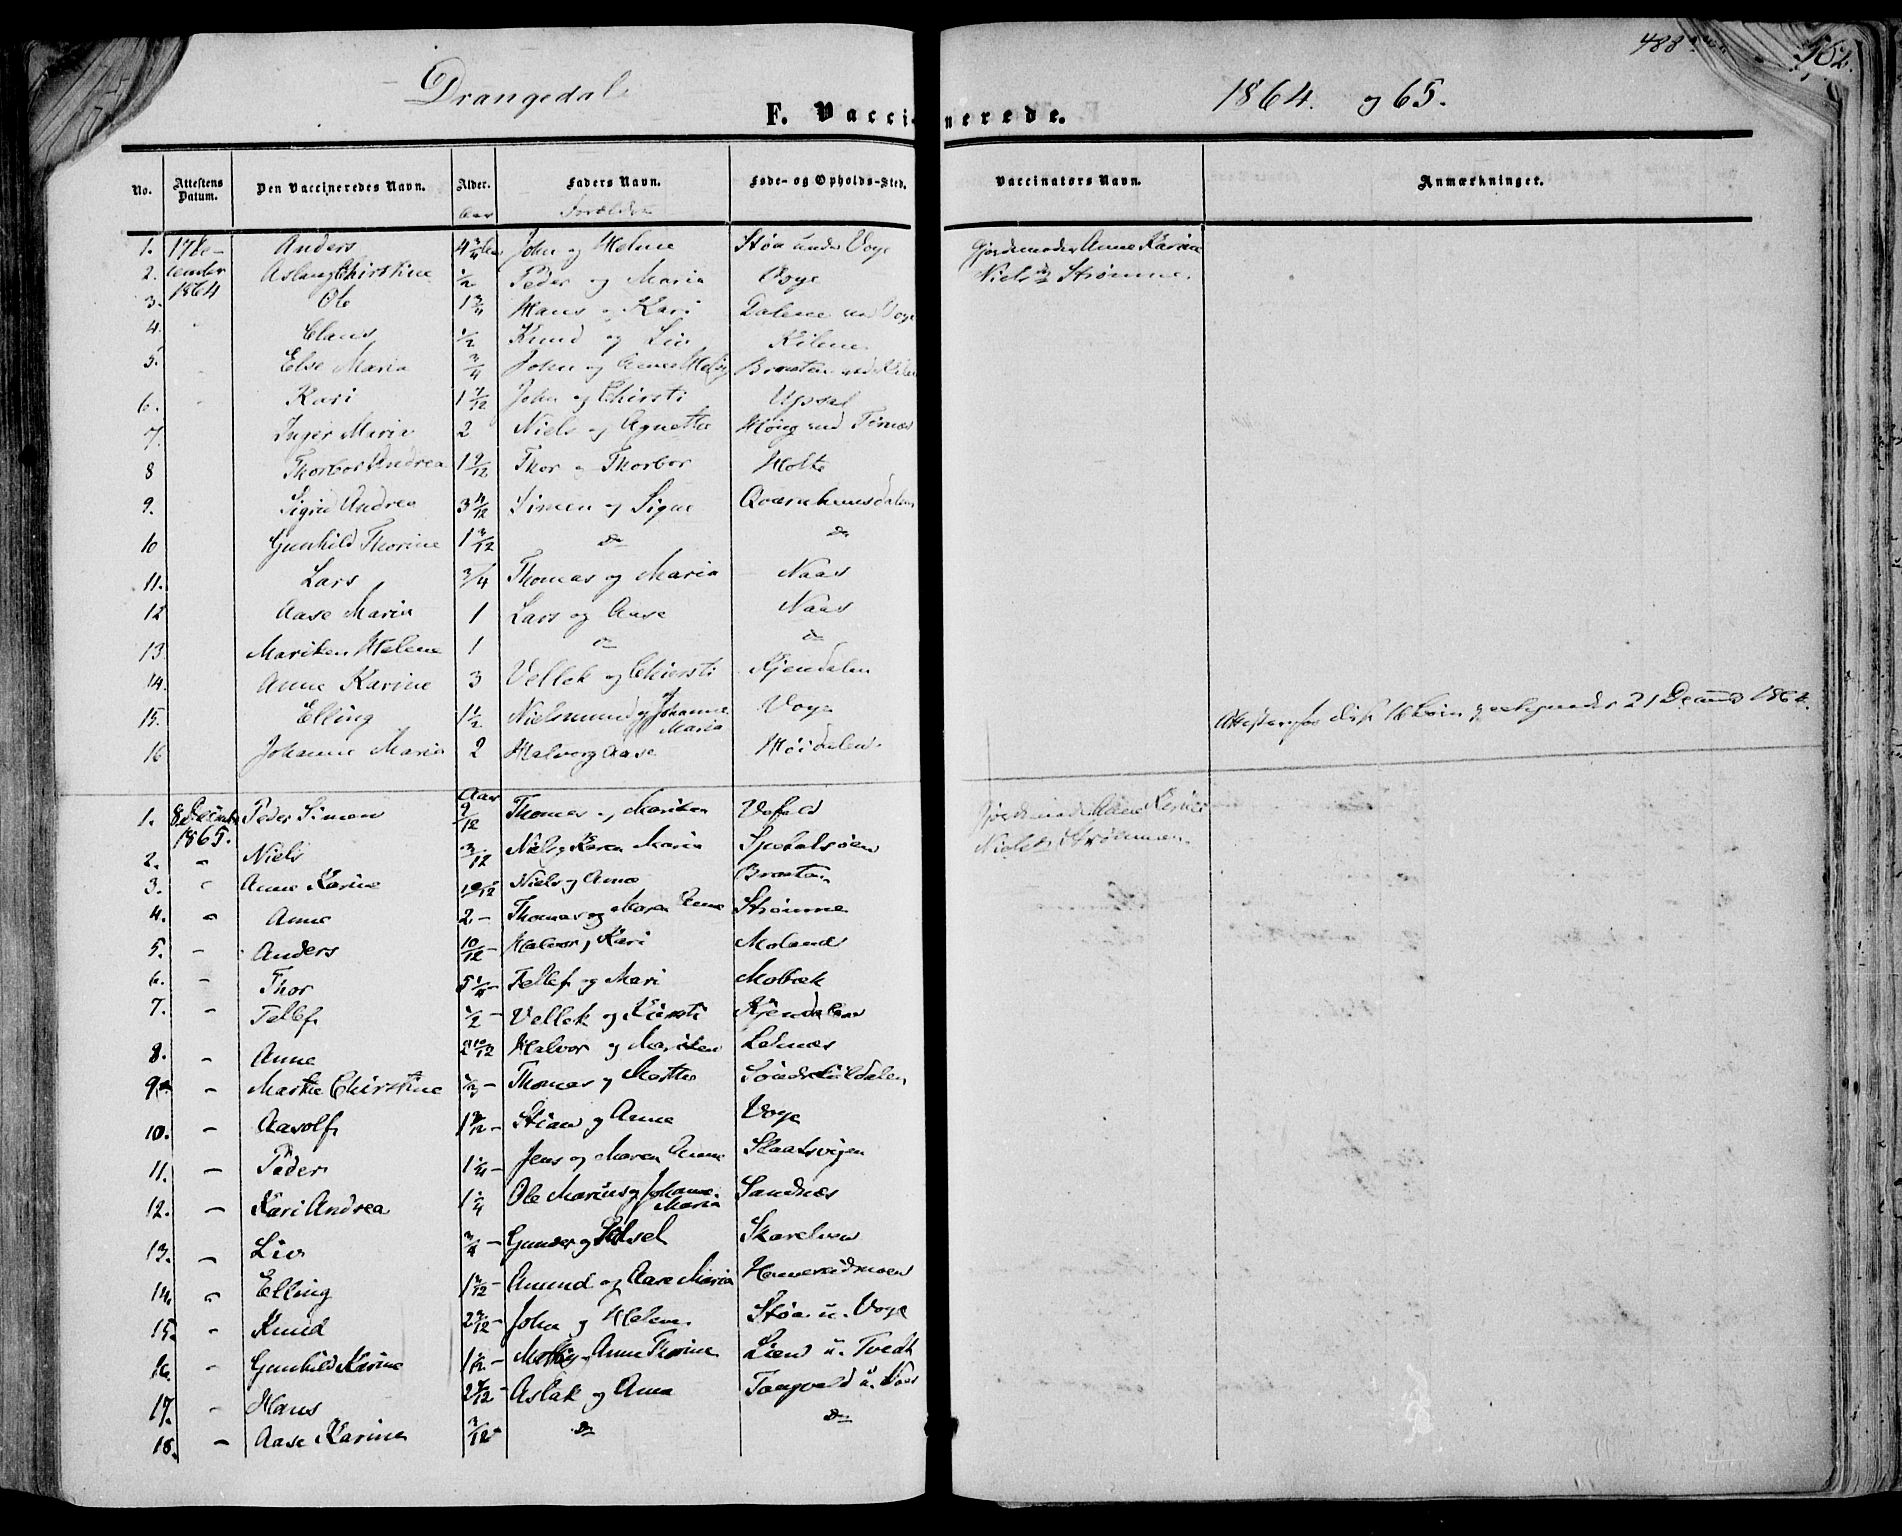 488
552.
Drangedal
1864. og 65.
F. Vaccinerede.
No. Attestens Datum. Den Vaccineredes Navn. Alder. Faders Navn. Føde- og Opholds-Sted. Vaccinatørs Navn. Anmærkninger.
Aar Forældre
1. 17 De- Anders 4 3/4 John og Helene Støa under Voge Gjordemoder Anne Karine
2. cember Aslaug Chirstine 1/2 Peder og Maria Voge Nielsd. Strømme.
3. 1864 Ole 1 3/4 Hans og Kari Dalene und Voge
4. " Claus 1/2 Knud og Liv Kilene
5. " Else Maria 3/4 John og Anne Helvig Braaten und Kilen
6. " Kari 1 7/12 John og Chirsti Upsal
7. Inger Maria 2 Niels og Agnethe Houg und Tørnes
8 Thorbor Andrea 1 9/12 Thor og Thorbor Holte
9. Sigrid Andrea 3 4/12 Simen og Signe Qværnhuusdalen
10 Gunhild Thorine 1 3/12 do do
11. Lars 3/4 Thomas og Maria Naas
12 Aase Maria 1 Lars og Aase Naas
13 Mariken Helene 1 do do
14. Anne Karine 3 Vellek og Chirsti Kjendalen
15. Elling 1 1/2 Nielsmund og Johanne Maria Voge
Attester for disse 16 Børn 21 1864.
16 Johanne Maria 2 Halvor og Aase Høidalen
Aar
1. 8 Decembr 1865. Peder Simen 9/12 Thomas og Mariken Vefald Gjordemoder Anne Karine
2. " Niels 3/12 Niels og Karen Maria Spetalsøen Nielsd. Strømmen.
3. " Anne Karine 10/12 Niels og Anne Braaten
4. " Anne 2 - Thomas og Maren Anne Strømme
5. - Anders 10/12 - Halvor og Kari Molands
6. - Thor 5 1/4 - Tellef og Mari Mobæk
7. " Tellef 1/2 - Vellek og Kirsti Kjendalen
8. " Anne 2 10/12 Halvor og Mariken Lofnæs
9. - Marthe Chirstine 1/3 - Thomas og Marthe
10. - Aasolf 1 3/12 - Stian og Anne Voge
11. - Peder 1 1/4 - Jens og Maren Anne Slaatsvigen
12. - Kari Andrea 1 1/4 Ole Marius og Johanne Maria Sandnæs
13. - Liv 3/4 - Gunder og Sidsel Skarelven
14. " Elling 1 3/12 - Amund og Aase Maria
15. " Knud 2 3/12 - John og Helene Støa u. Voge
16. " Gunhild Karine 1 1/12 - og Anne Thorine Lien u. Tvedt
17. " Hans 2 9/12 Aslak og Anne Tangvald u. Naas
18. - Aase Karine 3/12 - do do